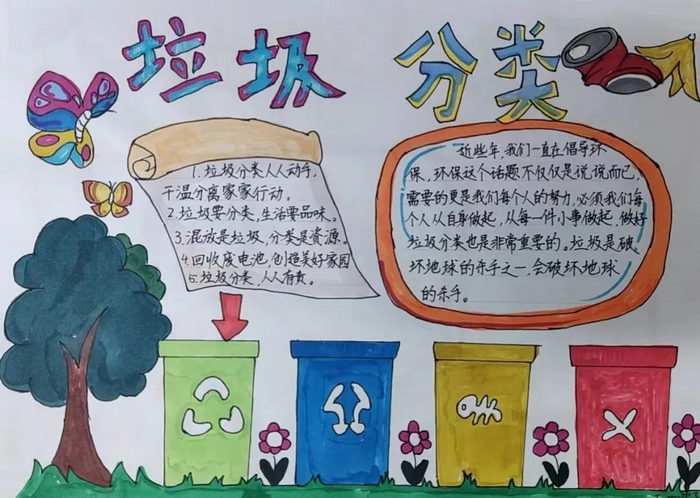 垃圾 分类
1. 垃圾分类人人动手,
干湿分离家家行动。
2. 垃圾要分类,生活要品味。
3. 混放是垃圾,分类是资源。
4. 回收废电池,创造美好家园
5. 垃圾分类,人人有责。
近些年,我们一直在倡导环
保,环保这个话题不仅仅是说说而已,
需要的更是我们每个人的努力,必须我们每
个人从自身做起,从每一件小事做起,做好
垃圾分类也是非常重要的。垃圾是破
坏地球的杀手之一,会破坏地球
的杀手。